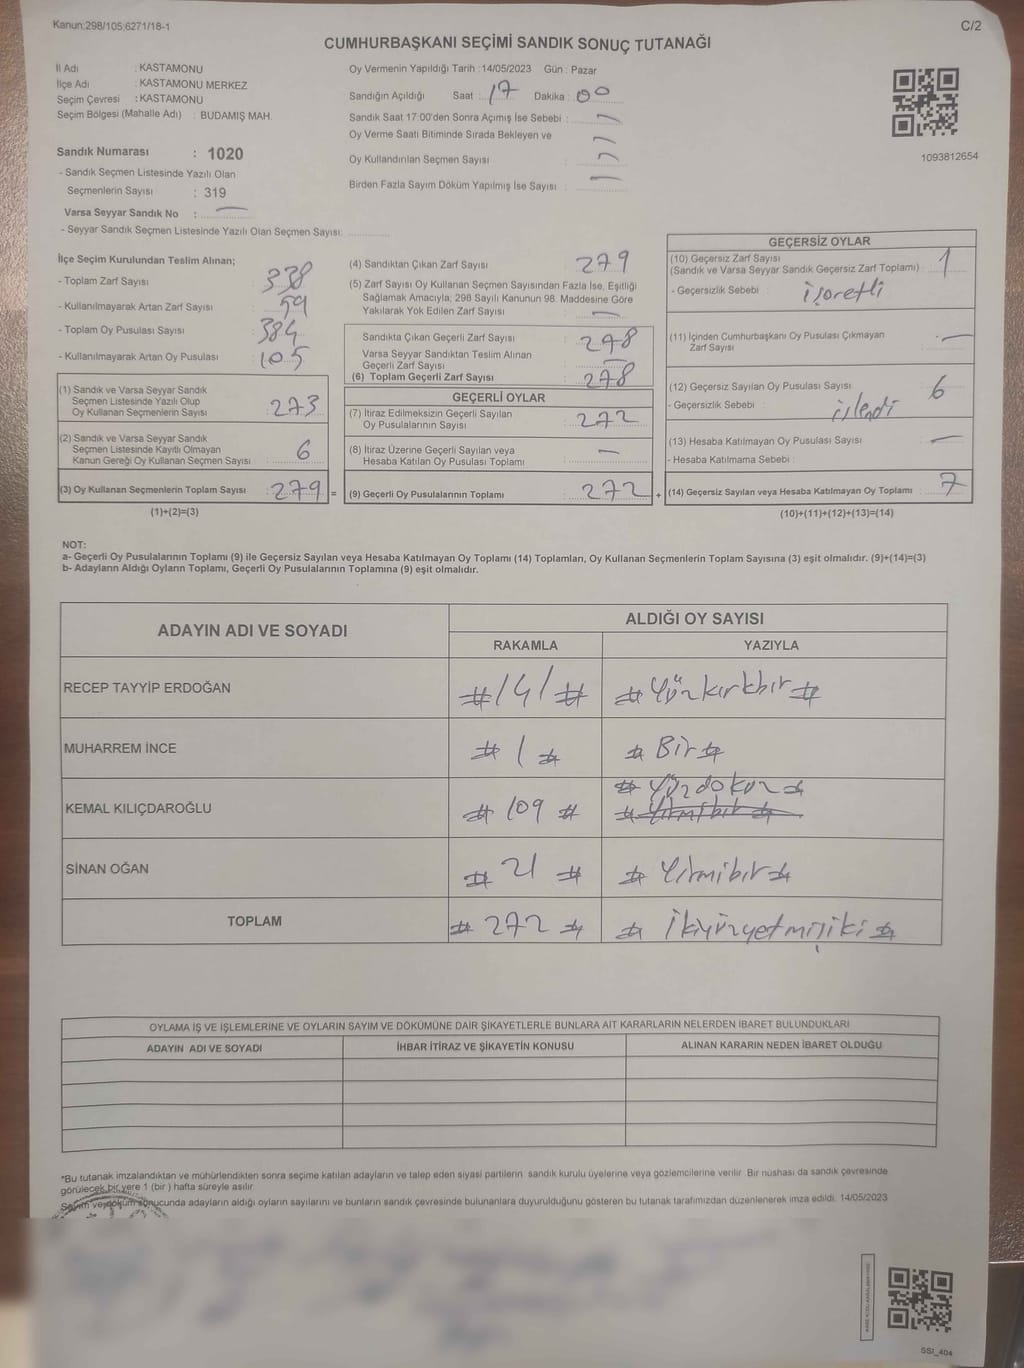 Kanun:298/105;6271/18-1
C/2
CUMHURBAŞKANI SEÇİMİ SANDIK SONUÇ TUTANAĞI
İl Adı : KASTAMONU
İlçe Adı : KASTAMONU MERKEZ
Seçim Çevresi : KASTAMONU
Seçim Bölgesi (Mahalle Adı) : BUDAMIŞ MAH.
Sandık Numarası : 1020
- Sandık Seçmen Listesinde Yazılı Olan
Seçmenlerin Sayısı : 319
Varsa Seyyar Sandık No : —
- Seyyar Sandık Seçmen Listesinde Yazılı Olan Seçmen Sayısı:
Oy Vermenin Yapıldığı Tarih :14/05/2023 Gün : Pazar
Sandığın Açıldığı Saat : 17 Dakika : 00
Sandık Saat 17:00'den Sonra Açımış İse Sebebi : —
Oy Verme Saati Bitiminde Sırada Bekleyen ve —
Oy Kullandırılan Seçmen Sayısı : —
Birden Fazla Sayım Döküm Yapılmış İse Sayısı : —
1093812654
İlçe Seçim Kurulundan Teslim Alınan;
- Toplam Zarf Sayısı : 338
- Kullanılmayarak Artan Zarf Sayısı : 59
- Toplam Oy Pusulası Sayısı : 384
- Kullanılmayarak Artan Oy Pusulası : 105
(1) Sandık ve Varsa Seyyar Sandık
Seçmen Listesinde Yazılı Olup
Oy Kullanan Seçmenlerin Sayısı : 273
(2) Sandık ve Varsa Seyyar Sandık
Seçmen Listesinde Kayıtlı Olmayan
Kanun Gereği Oy Kullanan Seçmen Sayısı : 6
(3) Oy Kullanan Seçmenlerin Toplam Sayısı : 279 =
(1)+(2)=(3)
(4) Sandıktan Çıkan Zarf Sayısı : 279
(5) Zarf Sayısı Oy Kullanan Seçmen Sayısından Fazla İse, Eşitliği
Sağlamak Amacıyla; 298 Sayılı Kanunun 98. Maddesine Göre
Yakılarak Yok Edilen Zarf Sayısı : —
Sandıkta Çıkan Geçerli Zarf Sayısı : 278
Varsa Seyyar Sandıktan Teslim Alınan
Geçerli Zarf Sayısı : —
(6) Toplam Geçerli Zarf Sayısı : 278
GEÇERLİ OYLAR
(7) İtiraz Edilmeksizin Geçerli Sayılan
Oy Pusulalarının Sayısı : 272
(8) İtiraz Üzerine Geçerli Sayılan veya
Hesaba Katılan Oy Pusulası Toplamı : —
(9) Geçerli Oy Pusulalarının Toplamı : 272 +
GEÇERSİZ OYLAR
(10) Geçersiz Zarf Sayısı : 1
(Sandık ve Varsa Seyyar Sandık Geçersiz Zarf Toplamı)
- Geçersizlik Sebebi : işaretli
(11) İçinden Cumhurbaşkanı Oy Pusulası Çıkmayan —
Zarf Sayısı
(12) Geçersiz Sayılan Oy Pusulası Sayısı : 6
- Geçersizlik Sebebi : işlendi
(13) Hesaba Katılmayan Oy Pusulası Sayısı : —
- Hesaba Katılmama Sebebi :
(14) Geçersiz Sayılan veya Hesaba Katılmayan Oy Toplamı : 7
(10)+(11)+(12)+(13)=(14)
NOT:
a- Geçerli Oy Pusulalarının Toplamı (9) ile Geçersiz Sayılan veya Hesaba Katılmayan Oy Toplamı (14) Toplamları, Oy Kullanan Seçmenlerin Toplam Sayısına (3) eşit olmalıdır. (9)+(14)=(3)
b- Adayların Aldığı Oyların Toplamı, Geçerli Oy Pusulalarının Toplamına (9) eşit olmalıdır.
ADAYIN ADI VE SOYADI
ALDIĞI OY SAYISI
RAKAMLA YAZIYLA
RECEP TAYYİP ERDOĞAN # 141 # # Yüzkırkbir #
MUHARREM İNCE # 1 # # Bir #
KEMAL KILIÇDAROĞLU # 109 # # Yüzdokuz #
# Yirmibir #
SİNAN OĞAN # 21 # # Yirmibir #
TOPLAM # 272 # # İkiyüzyetmişiki #
OYLAMA İŞ VE İŞLEMLERİNE VE OYLARIN SAYIM VE DÖKÜMÜNE DAİR ŞİKAYETLERLE BUNLARA AİT KARARLARIN NELERDEN İBARET BULUNDUKLARI
ADAYIN ADI VE SOYADI İHBAR İTİRAZ VE ŞİKAYETİN KONUSU ALINAN KARARIN NEDEN İBARET OLDUĞU
*Bu tutanak imzalandıktan ve mühürlendikten sonra seçime katılan adayların ve talep eden siyasi partilerin sandık kurulu üyelerine veya gözlemcilerine verilir. Bir nüshası da sandık çevresinde
görülecek bir yere 1 (bir ) hafta süreyle asılır.
Sayım ve döküm sonucunda adayların aldığı oyların sayılarını ve bunların sandık çevresinde bulunanlara duyurulduğunu gösteren bu tutanak tarafımızdan düzenlenerek imza edildi. 14/05/2023
SSI_404